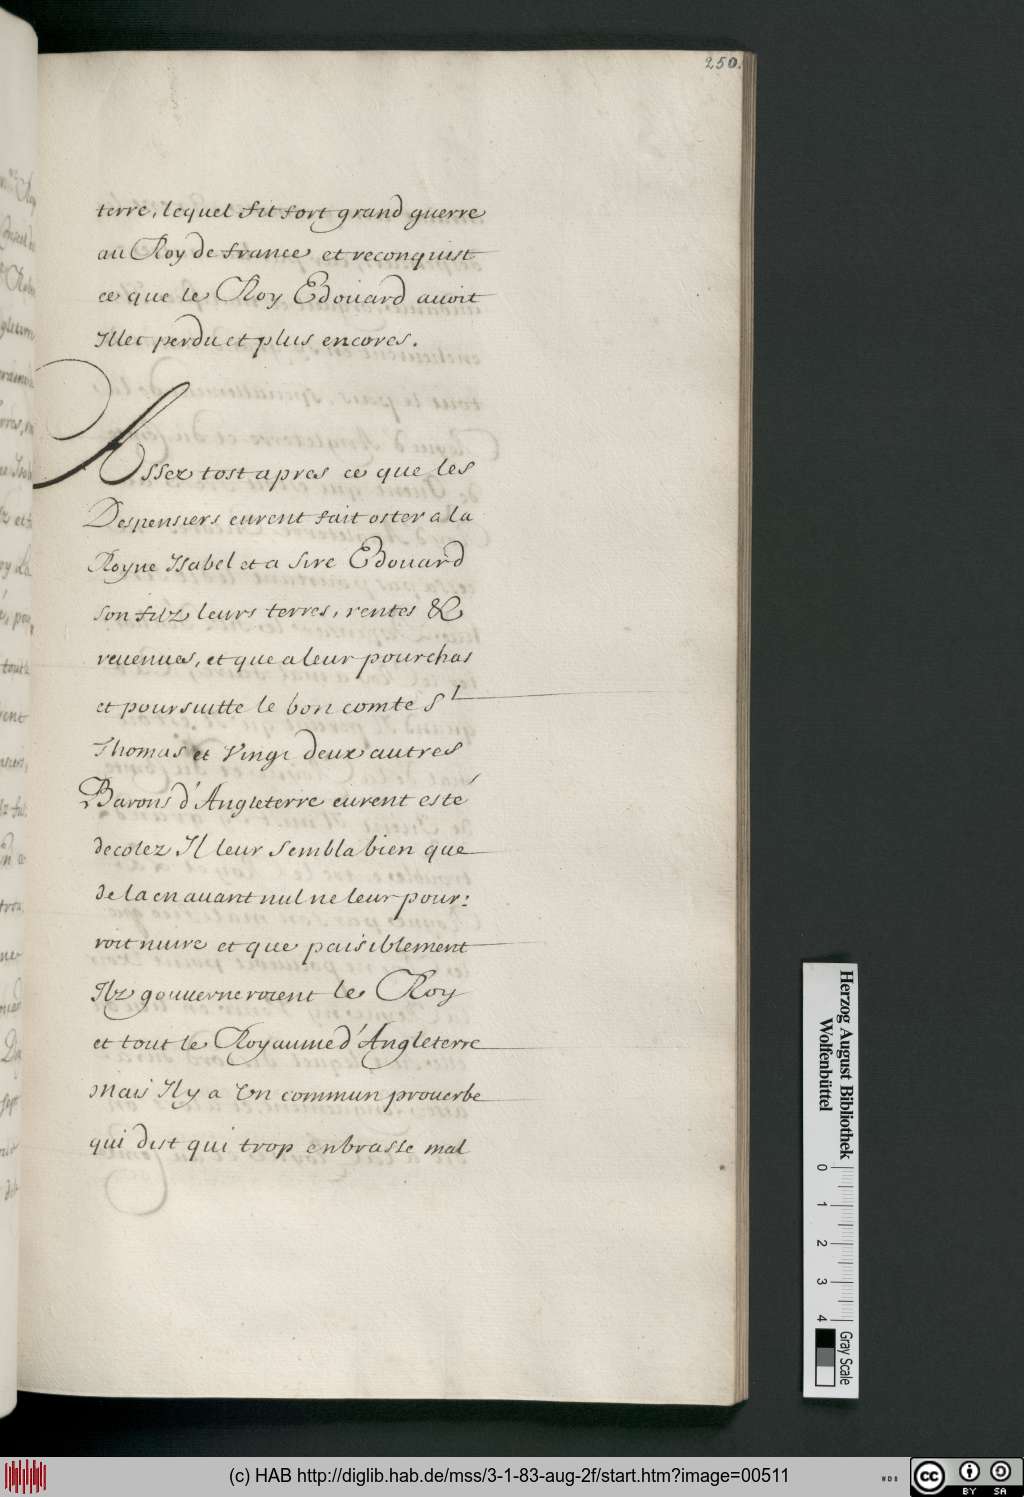 250.
terre, lequel fit fort grand guerre
au Roy de france et reconquist
ce que le Roy Edouard auoit
Illec perdu et plus encores.
Assez tost apres ce que les
Despensiers eurent fait oster a la
Royne Isabel et a Sire Edouard
son filz leurs terres, rentes &
reuenues, et que a leur pourchas
et poursuitte le bon comte St
Thomas et Vingt deux autres
Barons d'Angleterre eurent esté
decolez Il leur sembla bien que
de la en auant nul ne leur pour:
roit nuire et que paisiblement
Ilz gouuerneroient le Roy
et tout le Royaume d'Angleterre
Mais Il y a Un commun prouerbe
qui dist qui trop enbrasse mal
Herzog August Bibliothek
Wolfenbüttel
0 1 2 3 4
Gray Scale
(c) HAB http://diglib.hab.de/mss/3-1-83-aug-2f/start.htm?image=00511
WDB
cc BY SA